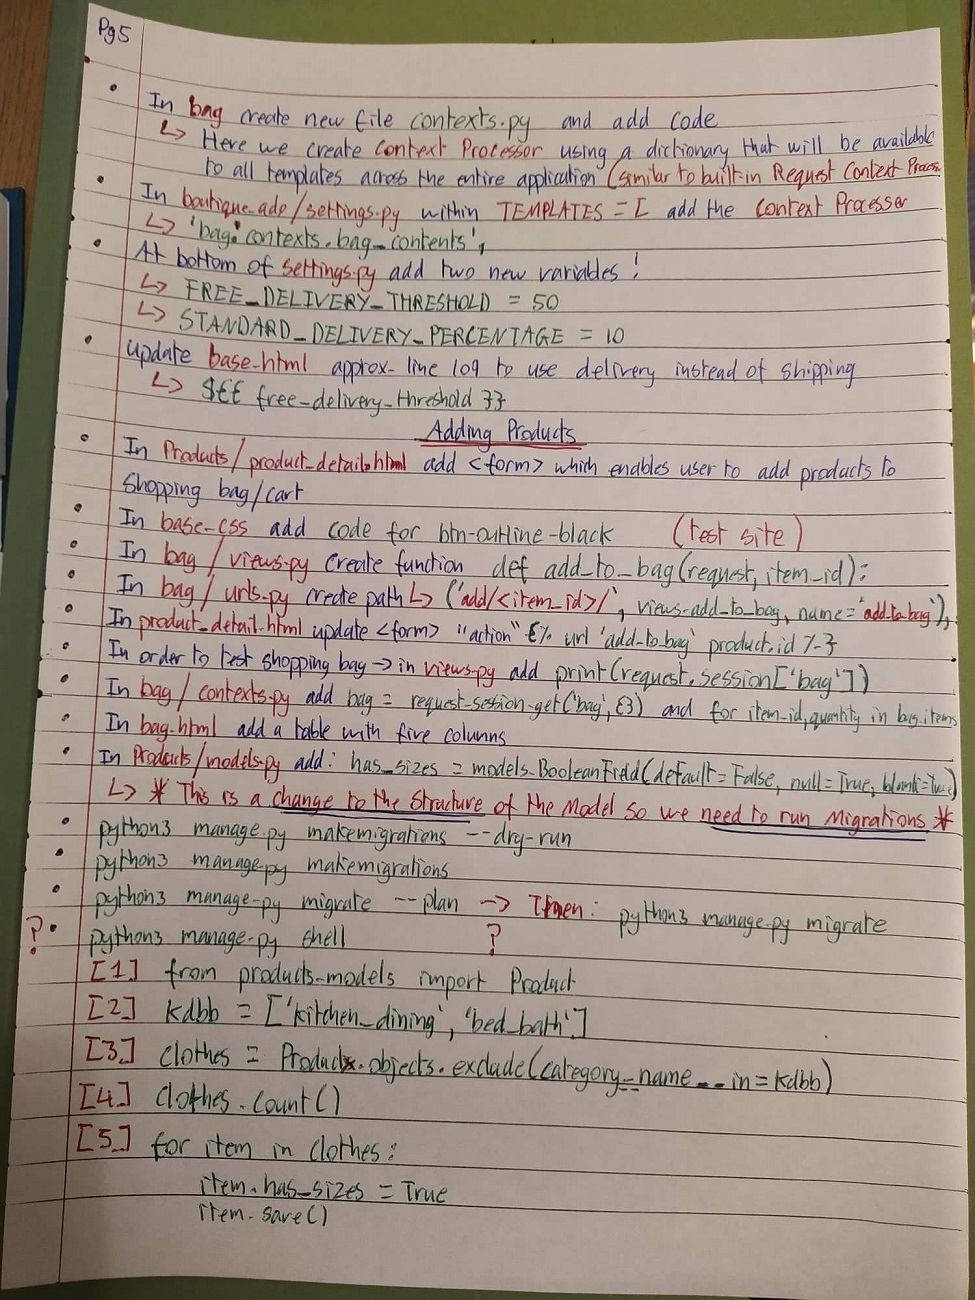 Pg5
In bag create new file contexts.py and add code
↳ Here we create Context Processor using a dictionary that will be available
to all templates across the entire application (similar to built-in Request Context Process
In boutique_ado/settings.py within TEMPLATES = [ add the Context Processor
↳ 'bag.contexts.bag_contents',
At bottom of settings.py add two new variables:
↳ FREE_DELIVERY_THRESHOLD = 50
↳ STANDARD_DELIVERY_PERCENTAGE = 10
update base.html approx. line 109 to use delivery instead of shipping
↳ ${{ free_delivery_threshold }}
Adding Products
In Products/product_detail.html add <form> which enables user to add products to
Shopping bag/cart
In base.css add code for btn-outline-black (test site)
In bag/views.py create function def add_to_bag(request, item_id):
In bag/urls.py create path ↳ ('add/<item_id>/', views.add_to_bag, name='add_to_bag'),
In product_detail.html update <form> "action" {% url 'add_to_bag' product.id %}
In order to test shopping bag → in views.py add print(request.session['bag'])
In bag/contexts.py add bag = request.session.get('bag', {}) and for item_id, quantity in bag.items
In bag.html add a table with five columns
In Products/models.py add: has_sizes = models.BooleanField(default=False, null=True, blank=True)
↳ * This is a change to the Structure of the Model so we need to run Migrations *
python3 manage.py makemigrations --dry-run
python3 manage.py makemigrations
python3 manage.py migrate --plan → Then: python3 manage.py migrate
? python3 manage.py shell ?
[1] from products.models import Product
[2] kdbb = ['kitchen_dining', 'bed_bath']
[3] clothes = Product.objects.exclude(category__name__in=kdbb)
[4] clothes.count()
[5] for item in clothes:
item.has_sizes = True
item.save()